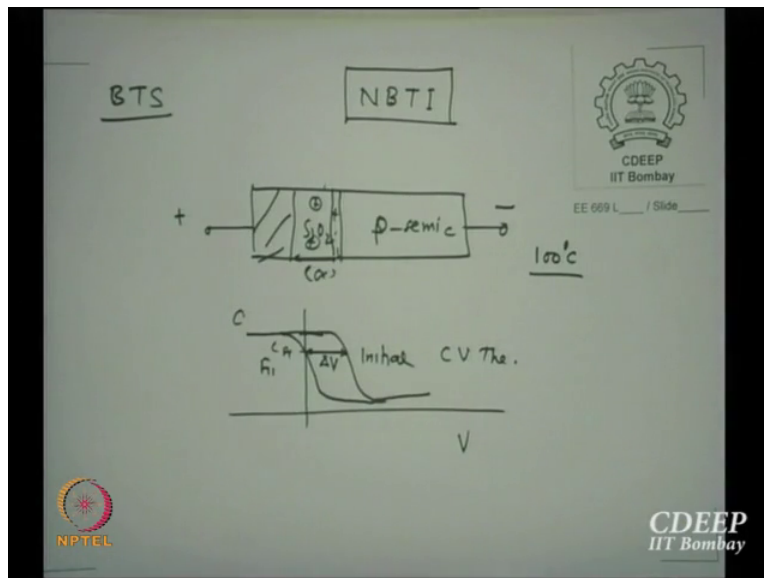 BTS NBTI
CDEEP
IIT Bombay
EE 669 L____ / Slide____
+ SiO2 p-semic −
100°C
(ox)
C
CFB ΔV Initial CV The.
V
NPTEL
CDEEP
IIT Bombay